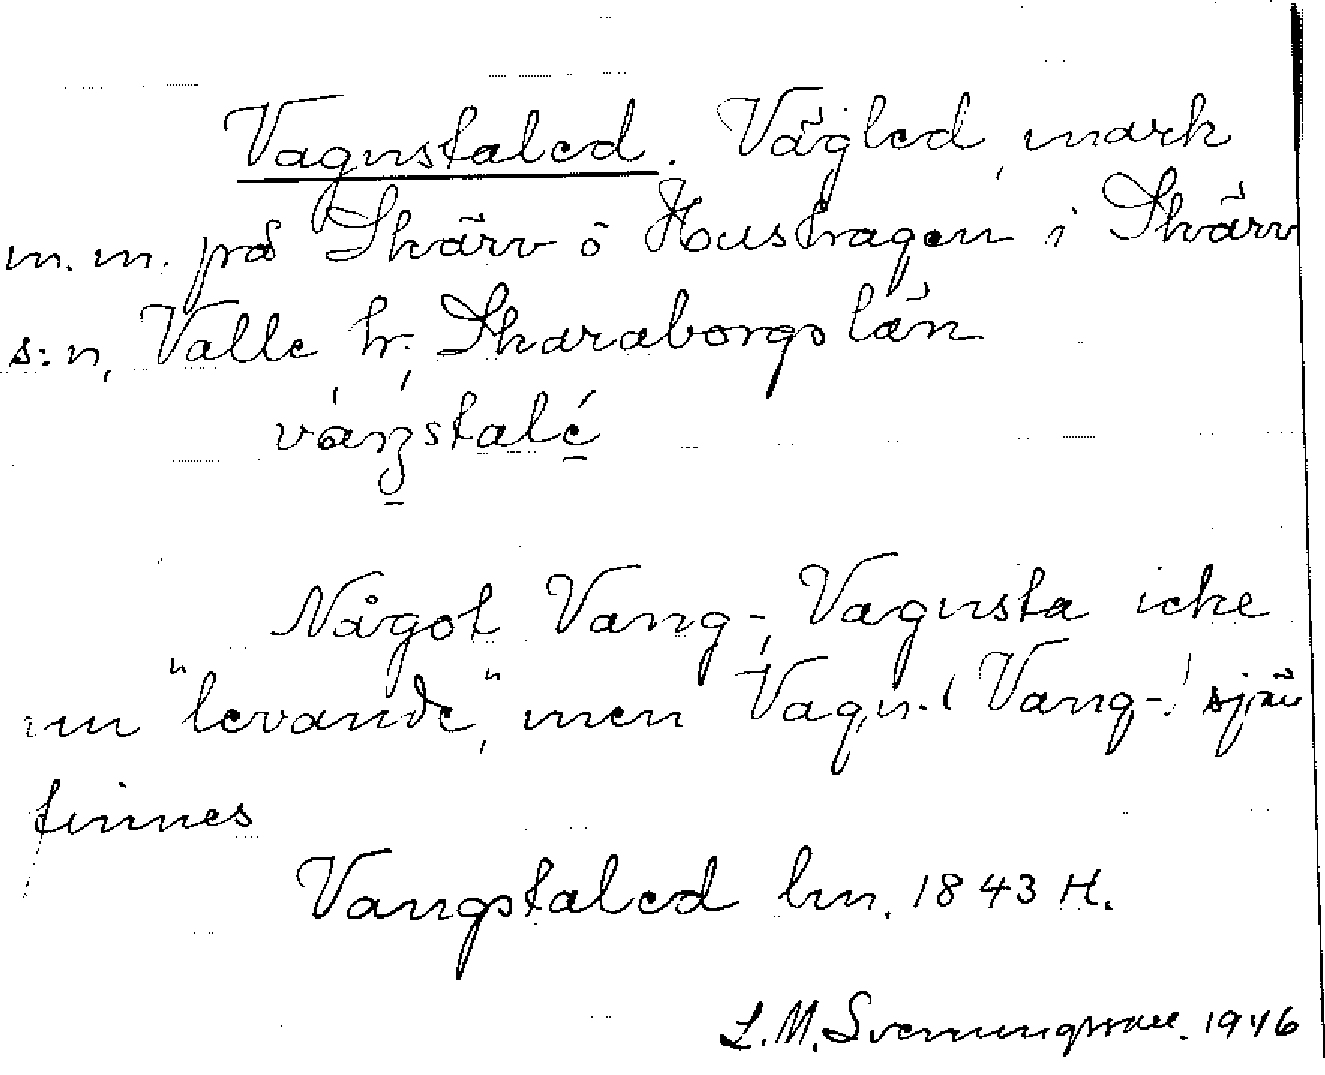 Vagnstaled. Vägled, mark
m. m. på Skärv ö Hushagen i Skärv
s:n, Valle hr, Skaraborgs län
Något Vang-, Vagnsta icke
nu "levande", men Vagn- (Vang-) sjön
finnes
Vangstaled lm. 1843 H.
L. M. Svenungsson. 1946